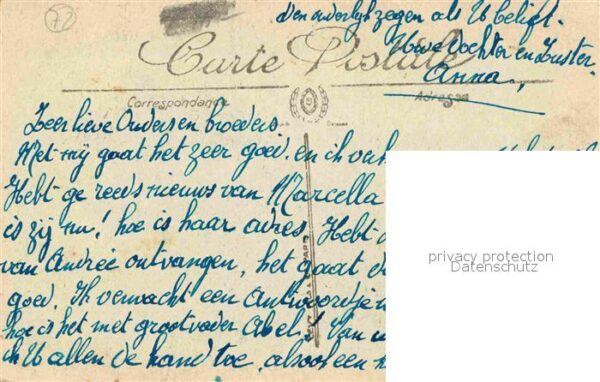 72
den ouderlijk zegen als U belieft.
Uwe Dochter en Zuster
Anna,
Carte Postale
Correspondance
Adresse
Zeer lieve Ouders en broeders
Met mij gaat het zeer goed. en ik
Hebt ge reeds nieuws van Marcella
is zij nu! hoe is haar adres. Hebt
van Andrée ontvangen, het gaat
goed. Ik verwacht een Antwoordje
hoe is het met grootvader Abel? Van
ik U allen de hand toe, alsook een
privacy protection
Datenschutz